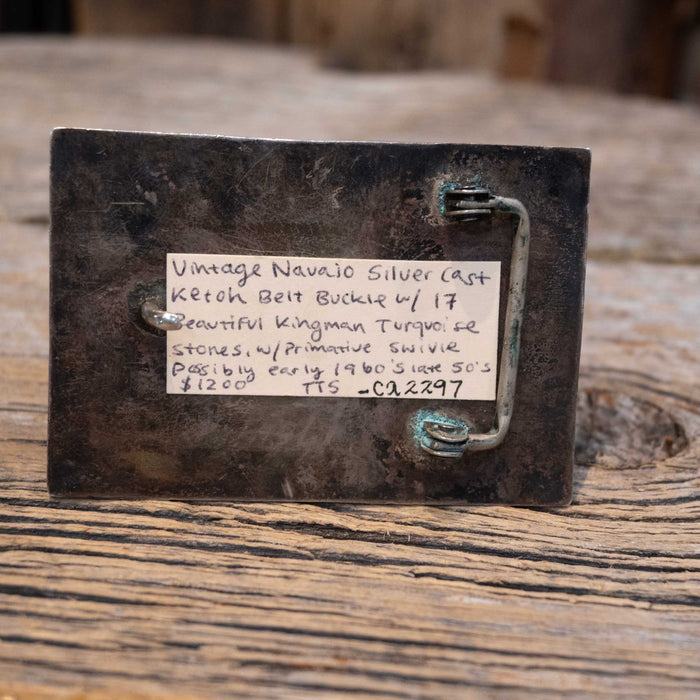 Vintage Navajo Silver Cast
Ketoh Belt Buckle w/ 17
Beautiful Kingman Turquoise
stones, w/ Primative Swivle
Possibly early 1960's late 50's
$1200⁰⁰ TTS -CA2297